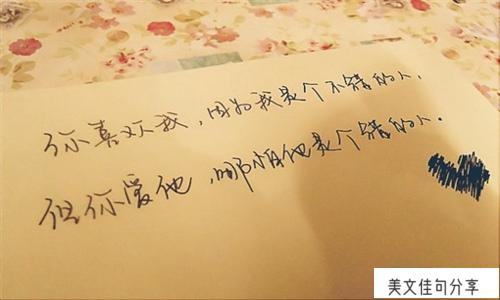 你喜欢我，因为我是个不错的人．
但你爱他，哪怕他是个错的人．
美文佳句分享